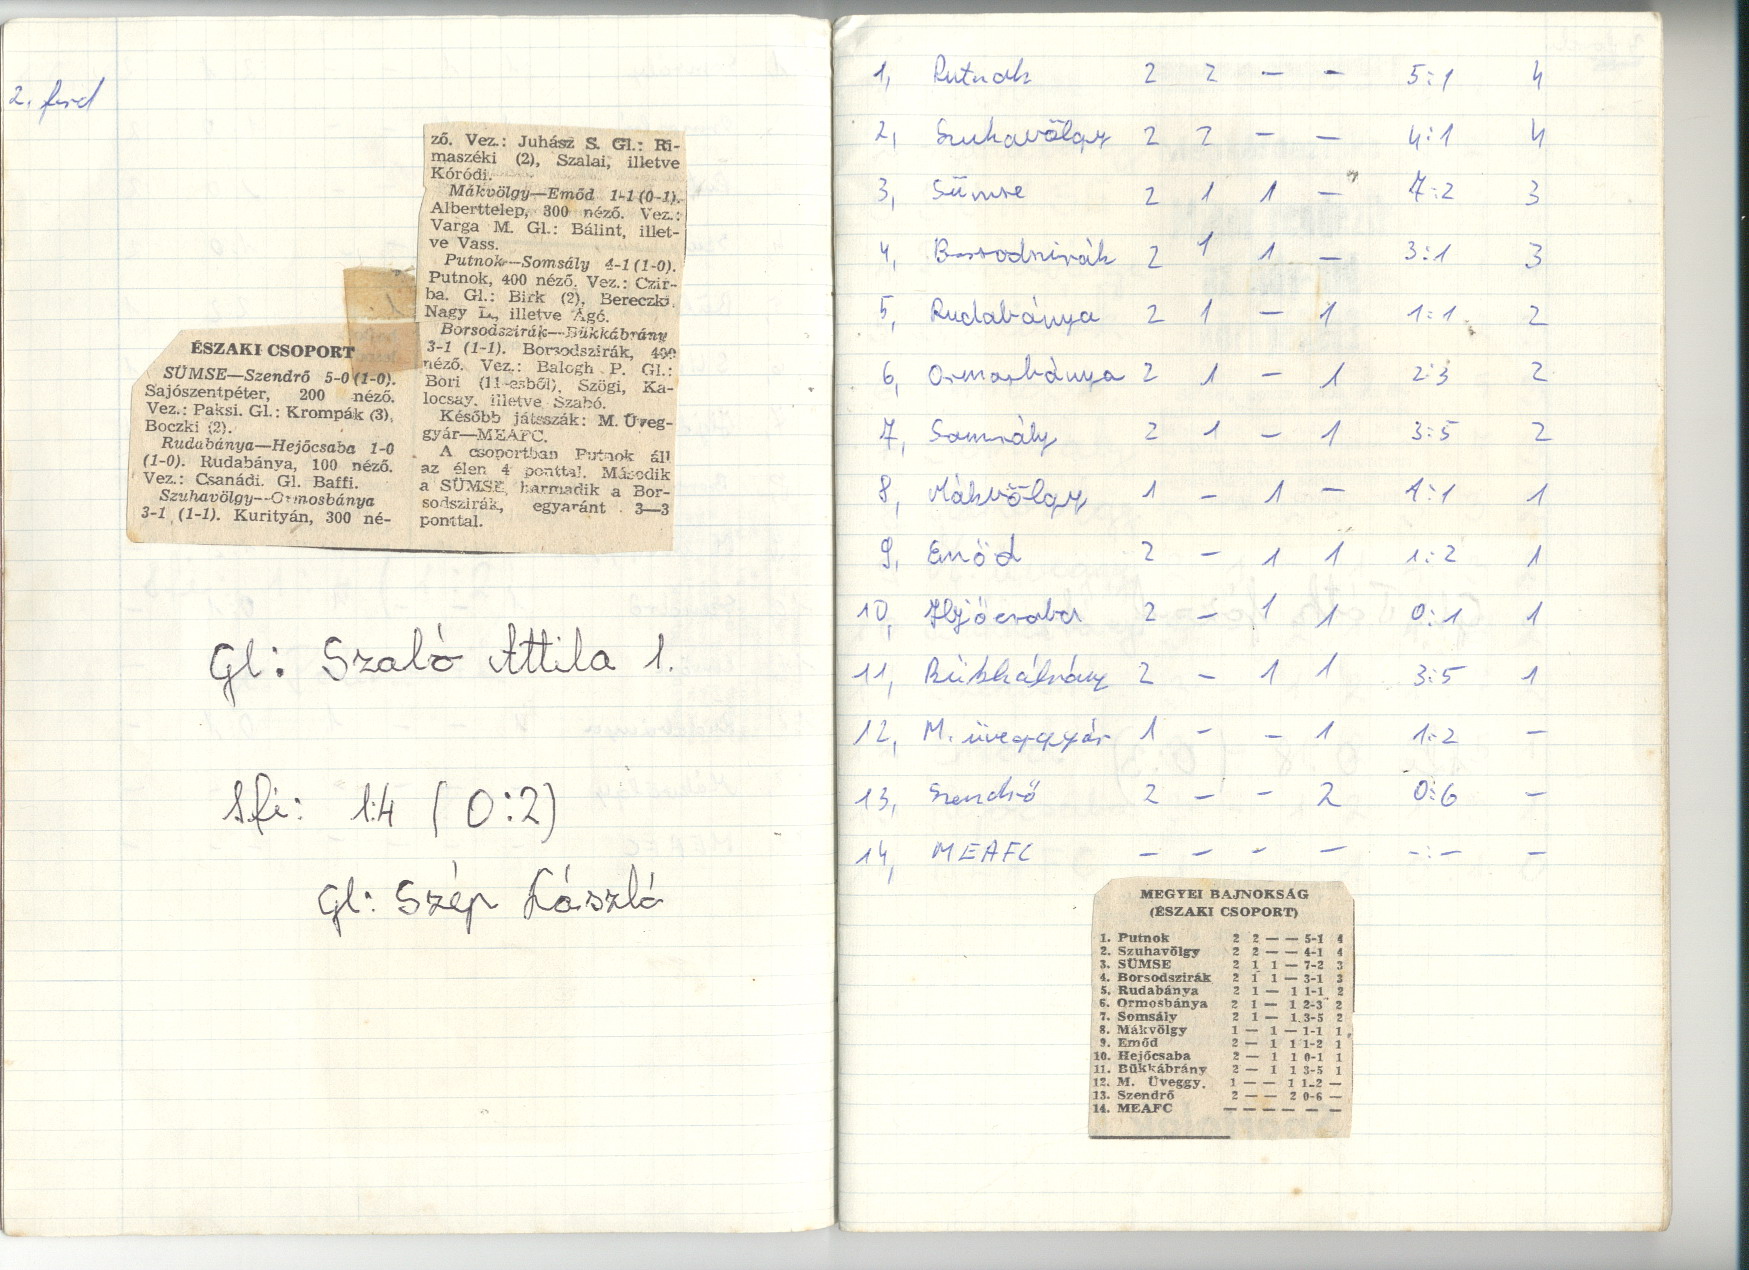 2. ford
ÉSZAKI CSOPORT
SÜMSE—Szendrő 5-0 (1-0).
Sajószentpéter, 200 néző.
Vez.: Paksi. Gl.: Krompák (3),
Boczki (2).
Rudabánya—Hejőcsaba 1-0
(1-0). Rudabánya, 100 néző.
Vez.: Csanádi. Gl. Baffi.
Szuhavölgy—Ormosbánya
3-1 (1-1). Kurityán, 300 né-
ző. Vez.: Juhász S. Gl.: Ri-
maszéki (2), Szalai, illetve
Kóródi.
Mákvölgy—Emőd 1-1 (0-1).
Alberttelep, 300 néző. Vez.:
Varga M. Gl.: Bálint, illet-
ve Vass.
Putnok—Somsály 4-1 (1-0).
Putnok, 400 néző. Vez.: Czir-
ba. Gl.: Birk (2), Bereczki,
Nagy L., illetve Ágó.
Borsodszirák—Bükkábrány
3-1 (1-1). Borsodszirák, 400
néző. Vez.: Balogh P. Gl.:
Bori (11-esből), Szögi, Ka-
locsay, illetve Szabó.
Később játsszák: M. Üveg-
gyár—MEAFC.
A csoportban Putnok áll
az élen 4 ponttal. Második
a SÜMSE, harmadik a Bor-
sodszirák, egyaránt 3—3
ponttal.
Gl: Szabó Attila 1.
Ifi: 1:4 (0:2)
Gl: Szép László
1, Putnok 2 2 — — 5:1 4
2, Szuhavölgy 2 2 — — 4:1 4
3, Sümse 2 1 1 — 7:2 3
4, Borsodszirák 2 1 1 — 3:1 3
5, Rudabánya 2 1 — 1 1:1 2
6, Ormosbánya 2 1 — 1 2:3 2
7, Somsály 2 1 — 1 3:5 2
8, Mákvölgy 1 — 1 — 1:1 1
9, Emőd 2 — 1 1 1:2 1
10, Hejőcsaba 2 — 1 1 0:1 1
11, Bükkábrány 2 — 1 1 3:5 1
12, M. üveggyár 1 — — 1 1:2 —
13, Szendrő 2 — — 2 0:6 —
14, MEAFC — — — — -:- —
MEGYEI BAJNOKSÁG
(ÉSZAKI CSOPORT)
1. Putnok 2 2 — — 5-1 4
2. Szuhavölgy 2 2 — — 4-1 4
3. SÜMSE 2 1 1 — 7-2 3
4. Borsodszirák 2 1 1 — 3-1 3
5. Rudabánya 2 1 — 1 1-1 2
6. Ormosbánya 2 1 — 1 2-3 2
7. Somsály 2 1 — 1 3-5 2
8. Mákvölgy 1 — 1 — 1-1 1
9. Emőd 2 — 1 1 1-2 1
10. Hejőcsaba 2 — 1 1 0-1 1
11. Bükkábrány 2 — 1 1 3-5 1
12. M. Üveggy. 1 — — 1 1-2 —
13. Szendrő 2 — — 2 0-6 —
14. MEAFC — — — — — —